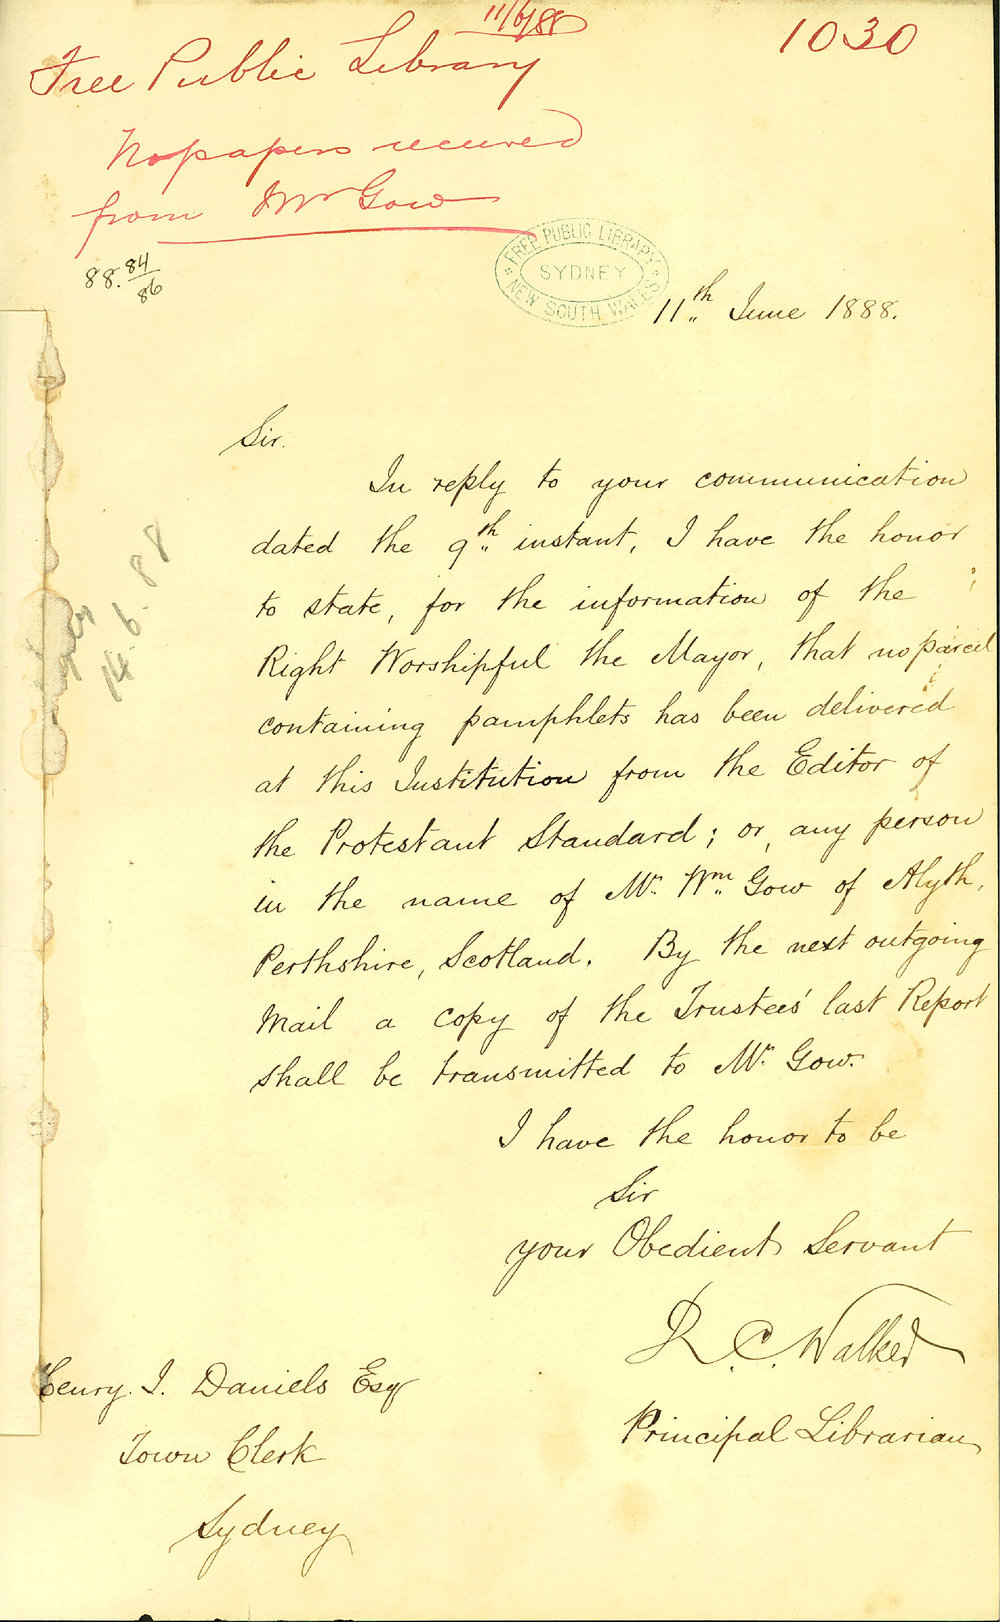 11/6/88
1030
Free Public Library
No papers received
from Mr Gow
88. 84/86
FREE PUBLIC LIBRARY
SYDNEY
NEW SOUTH WALES
11th June 1888.
Sir.
In reply to your communication
dated the 9th instant, I have the honor
to state, for the information of the
Right Worshipful the Mayor, that no parcel
containing pamphlets has been delivered
at this Institution from the Editor of
the Protestant Standard; or, any person
in the name of Mr. Wm. Gow of Alyth,
Perthshire, Scotland. By the next outgoing
Mail a copy of the Trustees' last Report
shall be transmitted to Mr. Gow.
I have the honor to be
Sir
your Obedient Servant
R. C. Walker
Principal Librarian
Henry. J. Daniels Esq
Town Clerk
Sydney
14.6.88